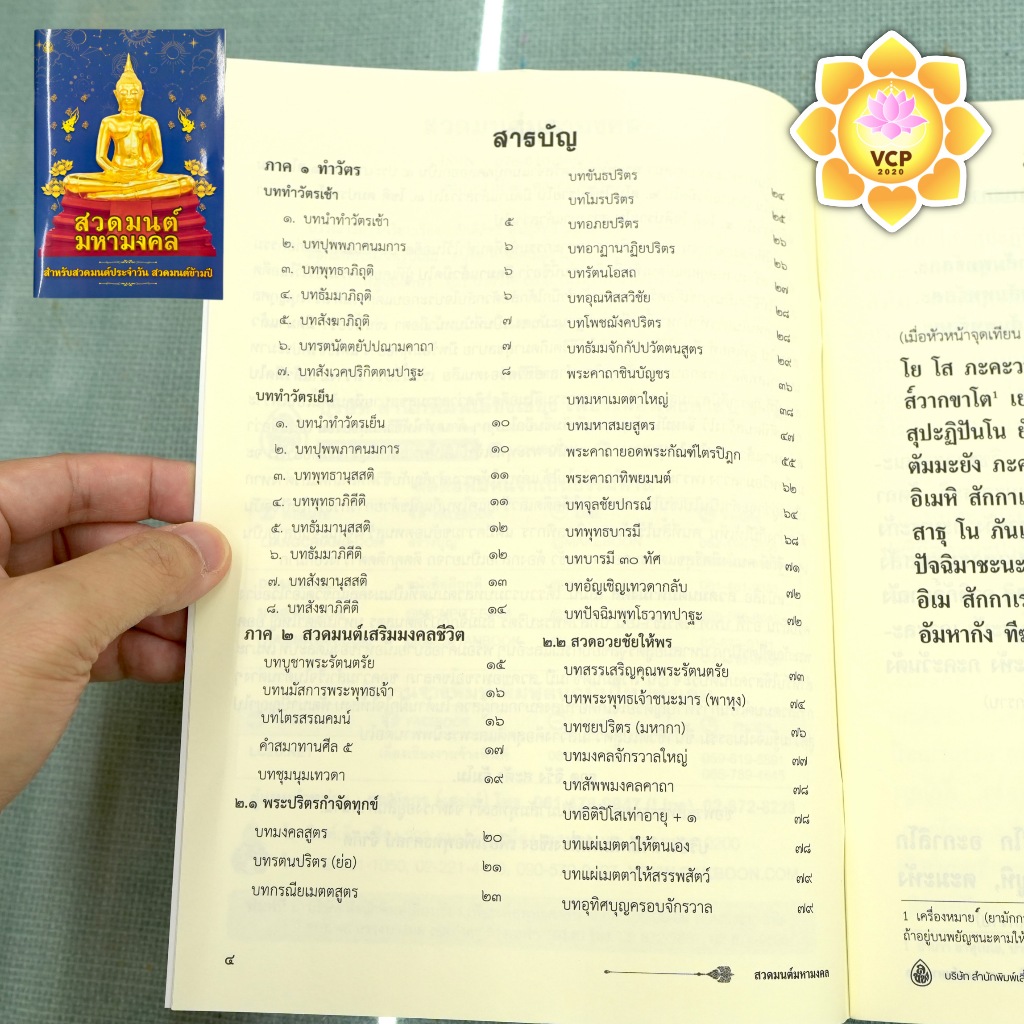 สวดมนต์
มหามงคล
สำหรับสวดมนต์ประจำวัน สวดมนต์ข้ามปี
VCP
2020
สารบัญ
ภาค ๑ ทำวัตร
บททำวัตรเช้า
๑. บทนำทำวัตรเช้า ๕
๒. บทปุพพภาคนมการ ๖
๓. บทพุทธาภิถุติ ๖
๔. บทธัมมาภิถุติ ๖
๕. บทสังฆาภิถุติ ๗
๖. บทรตนัตตยัปปณามคาถา ๗
๗. บทสังเวคปริกิตตนปาฐะ ๘
บททำวัตรเย็น
๑. บทนำทำวัตรเย็น ๑๐
๒. บทปุพพภาคนมการ ๑๐
๓. บทพุทธานุสสติ ๑๑
๔. บทพุทธาภิคีติ ๑๑
๕. บทธัมมานุสสติ ๑๒
๖. บทธัมมาภิคีติ ๑๒
๗. บทสังฆานุสสติ ๑๓
๘. บทสังฆาภิคีติ ๑๔
ภาค ๒ สวดมนต์เสริมมงคลชีวิต
บทบูชาพระรัตนตรัย ๑๕
บทนมัสการพระพุทธเจ้า ๑๖
บทไตรสรณคมน์ ๑๖
คำสมาทานศีล ๕ ๑๗
บทชุมนุมเทวดา ๑๙
๒.๑ พระปริตรกำจัดทุกข์
บทมงคลสูตร ๒๐
บทรตนปริตร (ย่อ) ๒๑
บทกรณียเมตตสูตร ๒๓
บทขันธปริตร ๒๔
บทโมรปริตร ๒๕
บทอภยปริตร ๒๖
บทอาฏานาฏิยปริตร ๒๖
บทรัตนโอสถ ๒๗
บทอุณหิสสวิชัย ๒๘
บทโพชฌังคปริตร ๒๘
บทธัมมจักกัปปวัตตนสูตร ๒๙
พระคาถาชินบัญชร ๓๖
บทมหาเมตตาใหญ่ ๓๘
บทมหาสมยสูตร ๔๗
พระคาถายอดพระกัณฑ์ไตรปิฎก ๕๕
พระคาถาทิพยมนต์ ๖๒
บทจุลชัยปกรณ์ ๖๔
บทพุทธบารมี ๖๘
บทบารมี ๓๐ ทัศ ๗๑
บทอัญเชิญเทวดากลับ ๗๒
บทปัจฉิมพุทโธวาทปาฐะ ๗๒
๒.๒ สวดอวยชัยให้พร
บทสรรเสริญคุณพระรัตนตรัย ๗๓
บทพระพุทธเจ้าชนะมาร (พาหุง) ๗๔
บทชยปริตร (มหากา) ๗๖
บทมงคลจักรวาลใหญ่ ๗๗
บทสัพพมงคลคาถา ๗๘
บทอิติปิโสเท่าอายุ + ๑ ๗๘
บทแผ่เมตตาให้ตนเอง ๗๘
บทแผ่เมตตาให้สรรพสัตว์ ๗๙
บทอุทิศบุญครอบจักรวาล ๗๙
๔
สวดมนต์มหามงคล
(เมื่อหัวหน้าจุดเทียน
โย โส ภะคะวา
ส์วากขาโต¹ เย
สุปะฏิปันโน
ตัมมะยัง ภะค
อิเมหิ สักกาเ
สาธุ โน ภันเ
ปัจฉิมาชะนะ
อิเม สักกาเร
อัมหากัง ทีฆ
1 เครื่องหมาย ์ (ยามักกา
ถ้าอยู่บนพยัญชนะตามให้
บริษัท สำนักพิมพ์เลี่